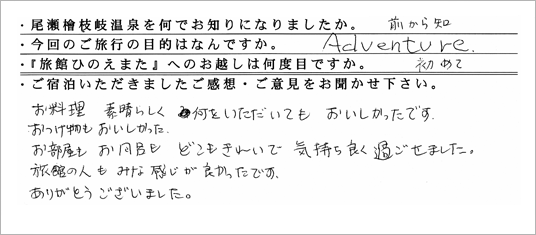 ・尾瀬檜枝岐温泉を何でお知りになりましたか。 前から知
・今回のご旅行の目的はなんですか。 Adventure.
・『旅館ひのえまた』へのお越しは何度目ですか。 初めて
・ご宿泊いただきましたご感想・ご意見をお聞かせ下さい。
お料理 素晴らしく 何をいただいても おいしかったです。
おつけ物もおいしかった。
お部屋も お風呂も どこもきれいで 気持ち良く過ごせました。
旅館の人も みな感じが良かったです。
ありがとうございました。